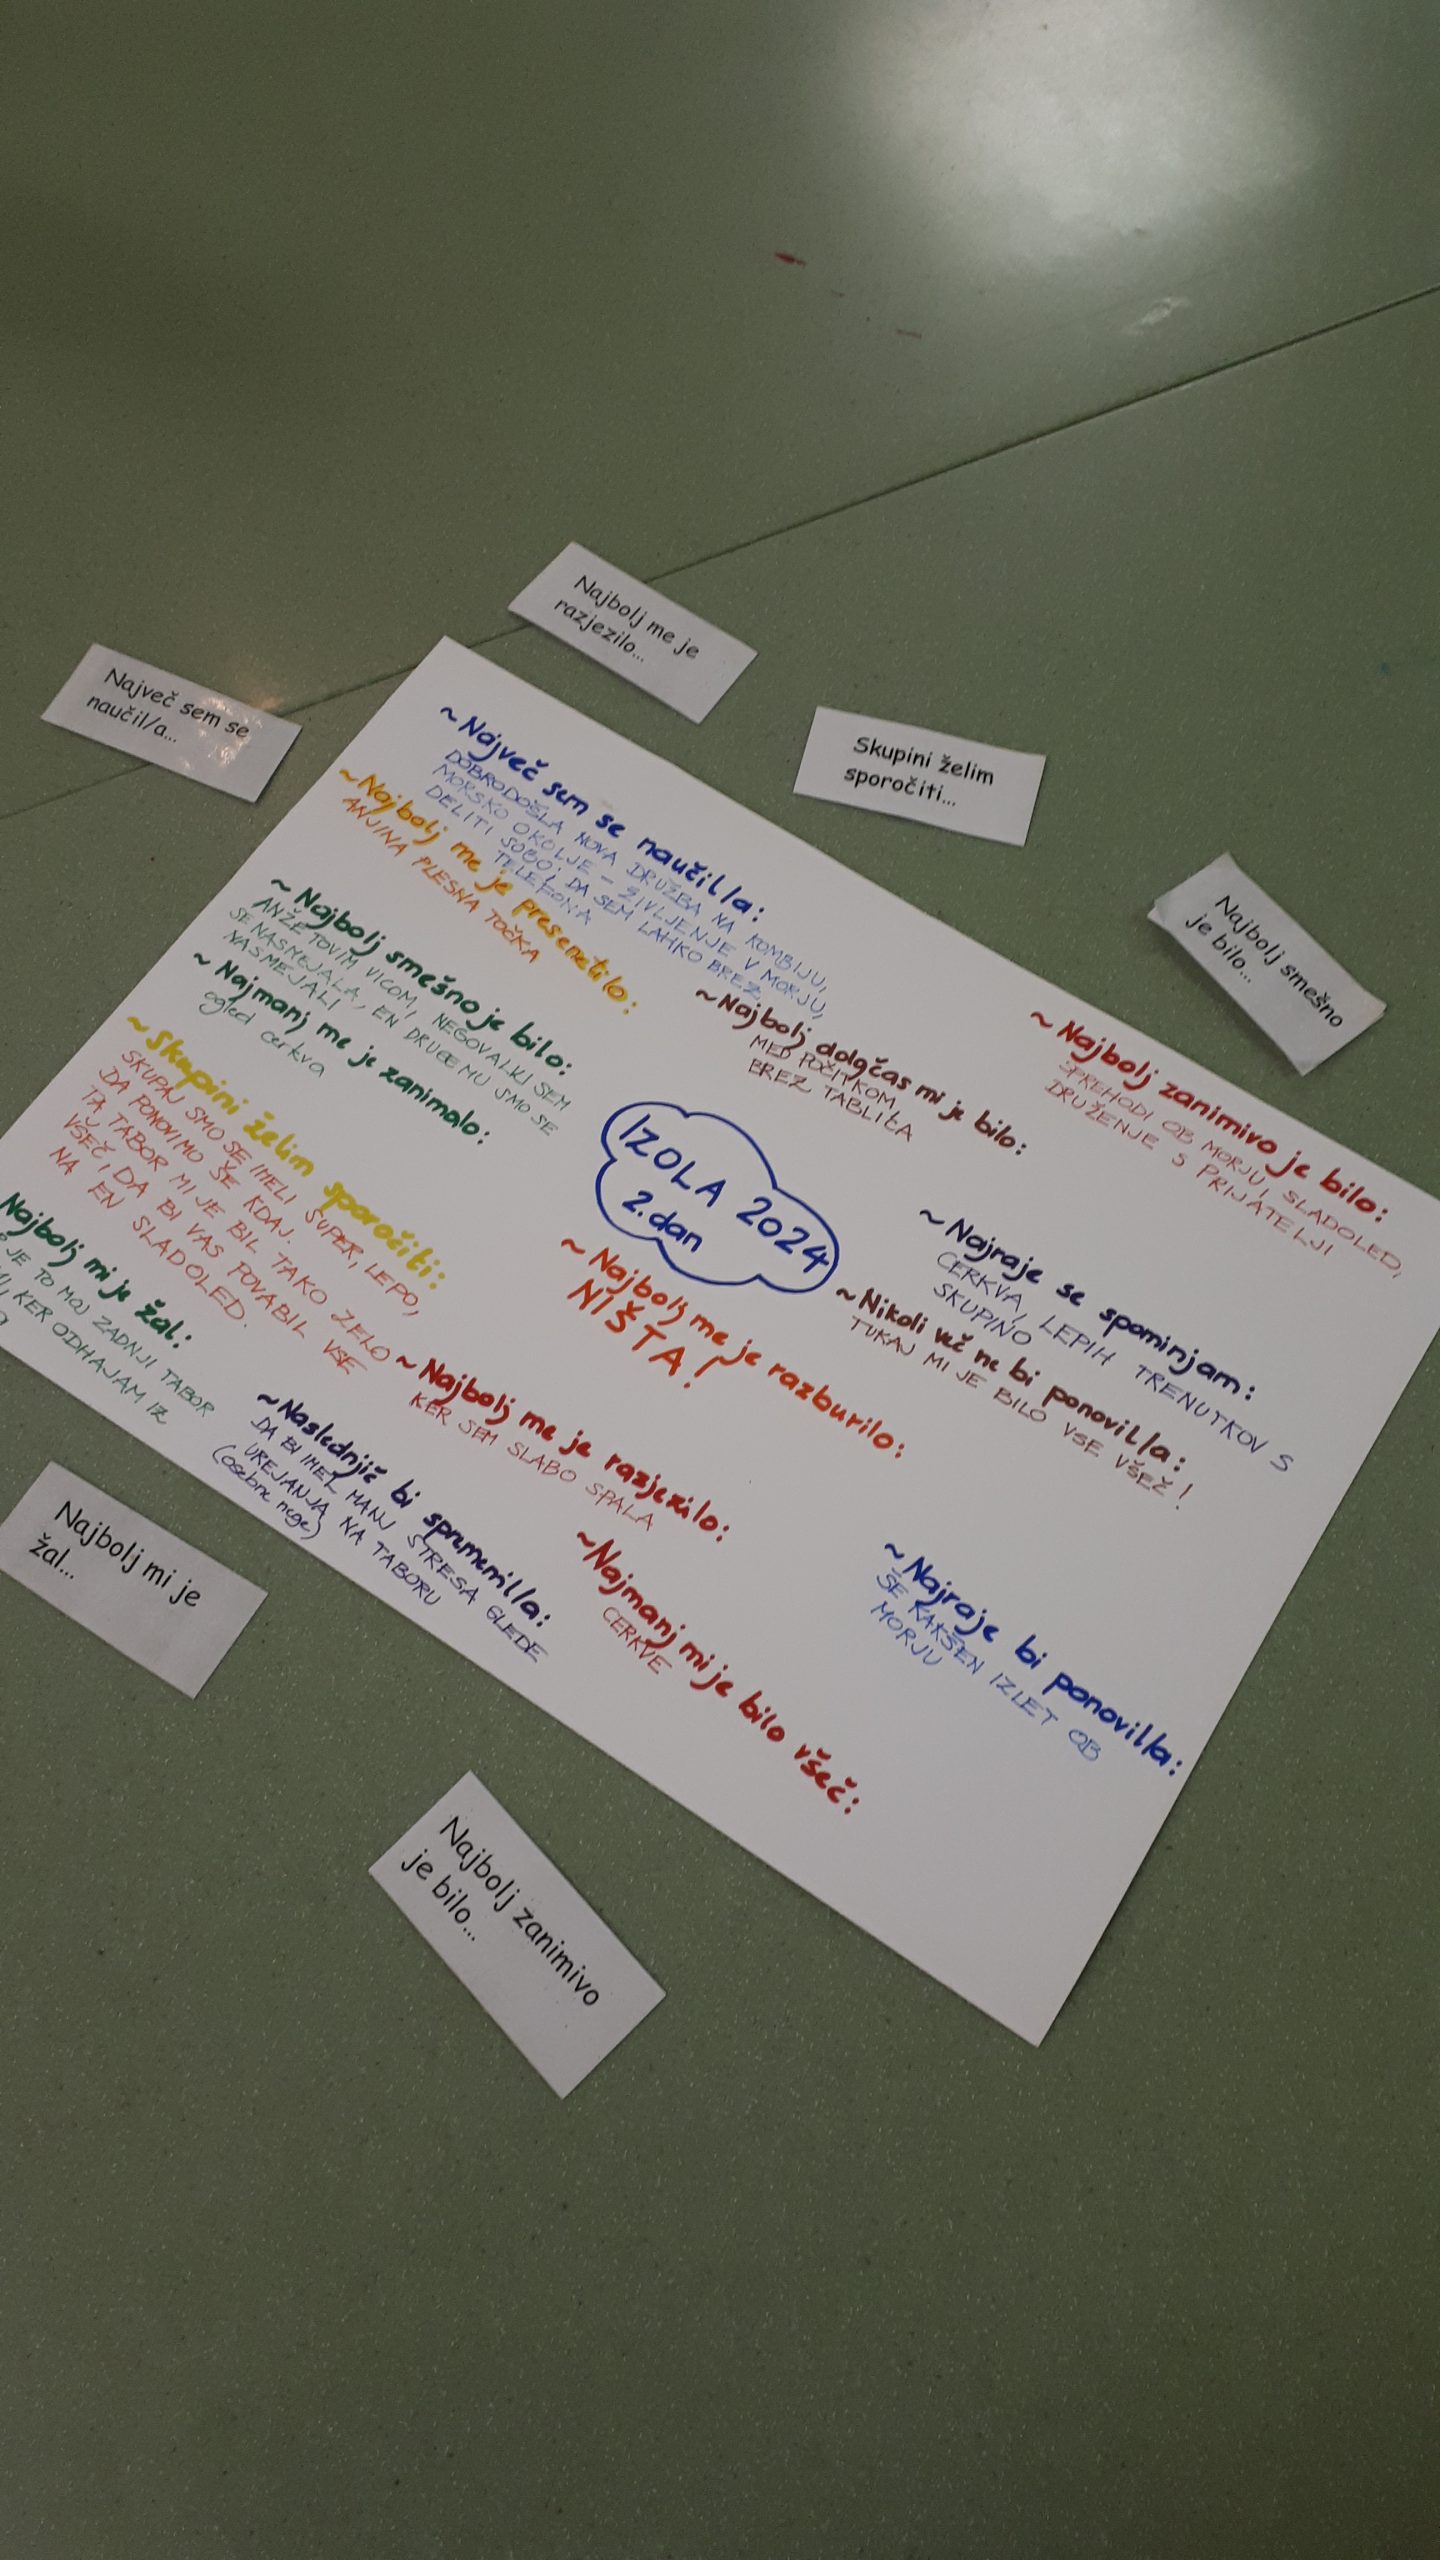 Najbolj me je
razjezilo...
Največ sem se
naučil/a...
Skupini želim
sporočiti...
Najbolj smešno
je bilo...
~Največ sem se naučil/a:
DOBRODOŠLA NOVA DRUŽBA NA KOMBIJU,
MORSKO OKOLJE - ŽIVLJENJE V MORJU,
DELITI SOBO, DA SEM LAHKO BREZ
TELEFONA
~Najbolj me je presenetilo:
ANJINA PLESNA TOČKA
~Najbolj smešno je bilo:
ANŽETOVIM VICOM, NEGOVALKI SEM
SE NASMEJALA, EN DRUGEMU SMO SE
NASMEJALI
~Najmanj me je zanimalo:
ogled cerkva
~Skupini želim sporočiti:
SKUPAJ SMO SE IMELI SUPER, LEPO,
DA PONOVIMO ŠE KDAJ.
TA TABOR MI JE BIL TAKO ZELO
VŠEČ, DA BI VAS POVABIL VSE
NA EN SLADOLED.
Najbolj mi je žal:
JE TO MOJ ZADNJI TABOR
KER ODHAJAM IZ
~Najbolj dolgčas mi je bilo:
MED POČITKOM
BREZ TABLICA
~Najbolj zanimivo je bilo:
SPREHODI OB MORJU, SLADOLED,
DRUŽENJE S PRIJATELJI
IZOLA 2024
2.dan
~Najraje se spominjam:
CERKVA, LEPIH TRENUTKOV S
SKUPINO
~Nikoli več ne bi ponovil/a:
TUKAJ MI JE BILO VSE VŠEČ!
~Najbolj me je razburilo:
NIŠTA!
~Najbolj me je razjezilo:
KER SEM SLABO SPALA
~Naslednjič bi spremenil/a:
DA BI IMEL MANJ STRESA GLEDE
UREJANJA NA TABORU
(osebne nege)
~Najmanj mi je bilo všeč:
CERKVE
~Najraje bi ponovil/a:
ŠE KAKŠEN IZLET OB
MORJU
Najbolj mi je
žal...
Najbolj zanimivo
je bilo...